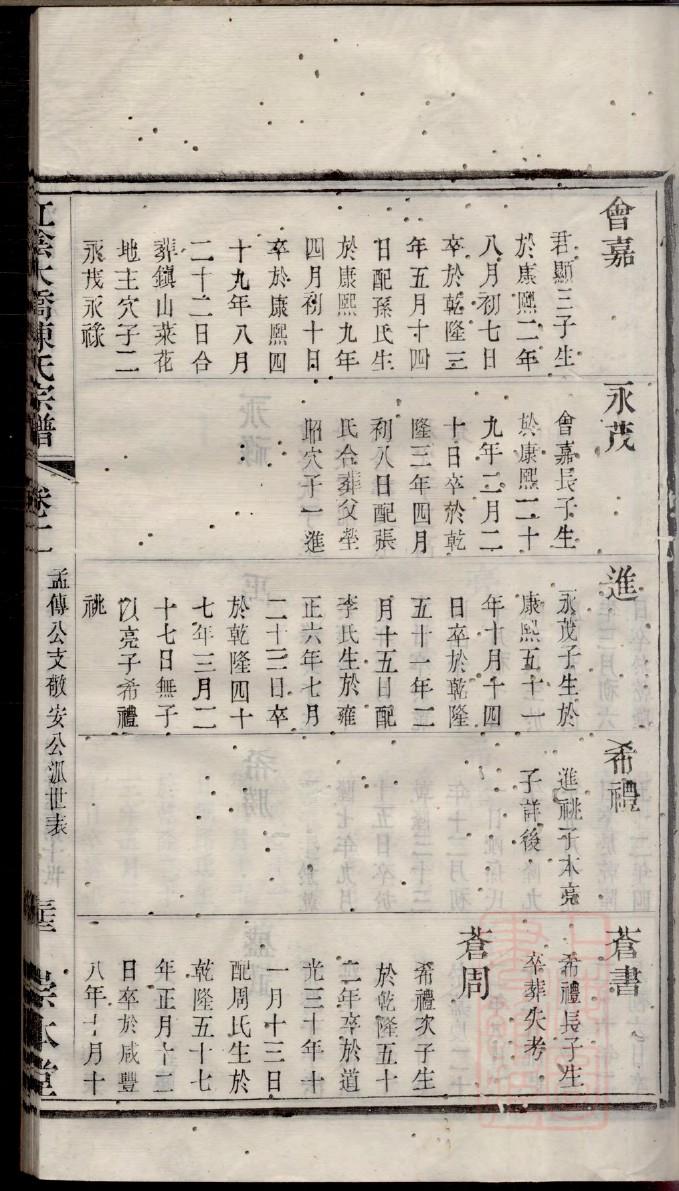 會嘉
君顯三子生
於康熙二年
八月初七日
卒於乾隆三
年五月十四
日配孫氏生
於康熙九年
四月初十日
卒於康熙四
十九年八月
二十二日合
葬鎮山菜花
地主穴子二
永茂永祿
永茂
會嘉長子生
於康熙二十
九年二月二
十日卒於乾
隆三年四月
初八日配張
氏合葬父塋
昭穴子一進
進
永茂子生於
康熙五十一
年十月十四
日卒於乾隆
五十一年二
月十五日配
李氏生於雍
正六年七月
二十三日卒
於乾隆四十
七年三月二
十七日無子
以亮子希禮
祧
希禮
進祧子本亮
子詳後
蒼書
希禮長子生
卒葬失考
蒼周
希禮次子生
於乾隆五十
二年卒於道
光三十年十
一月十三日
配周氏生於
乾隆五十七
年正月十二
日卒於咸豐
八年十月十
江陰大橋陳氏宗譜
卷二
孟傳公支敬安公派世表
崇本堂